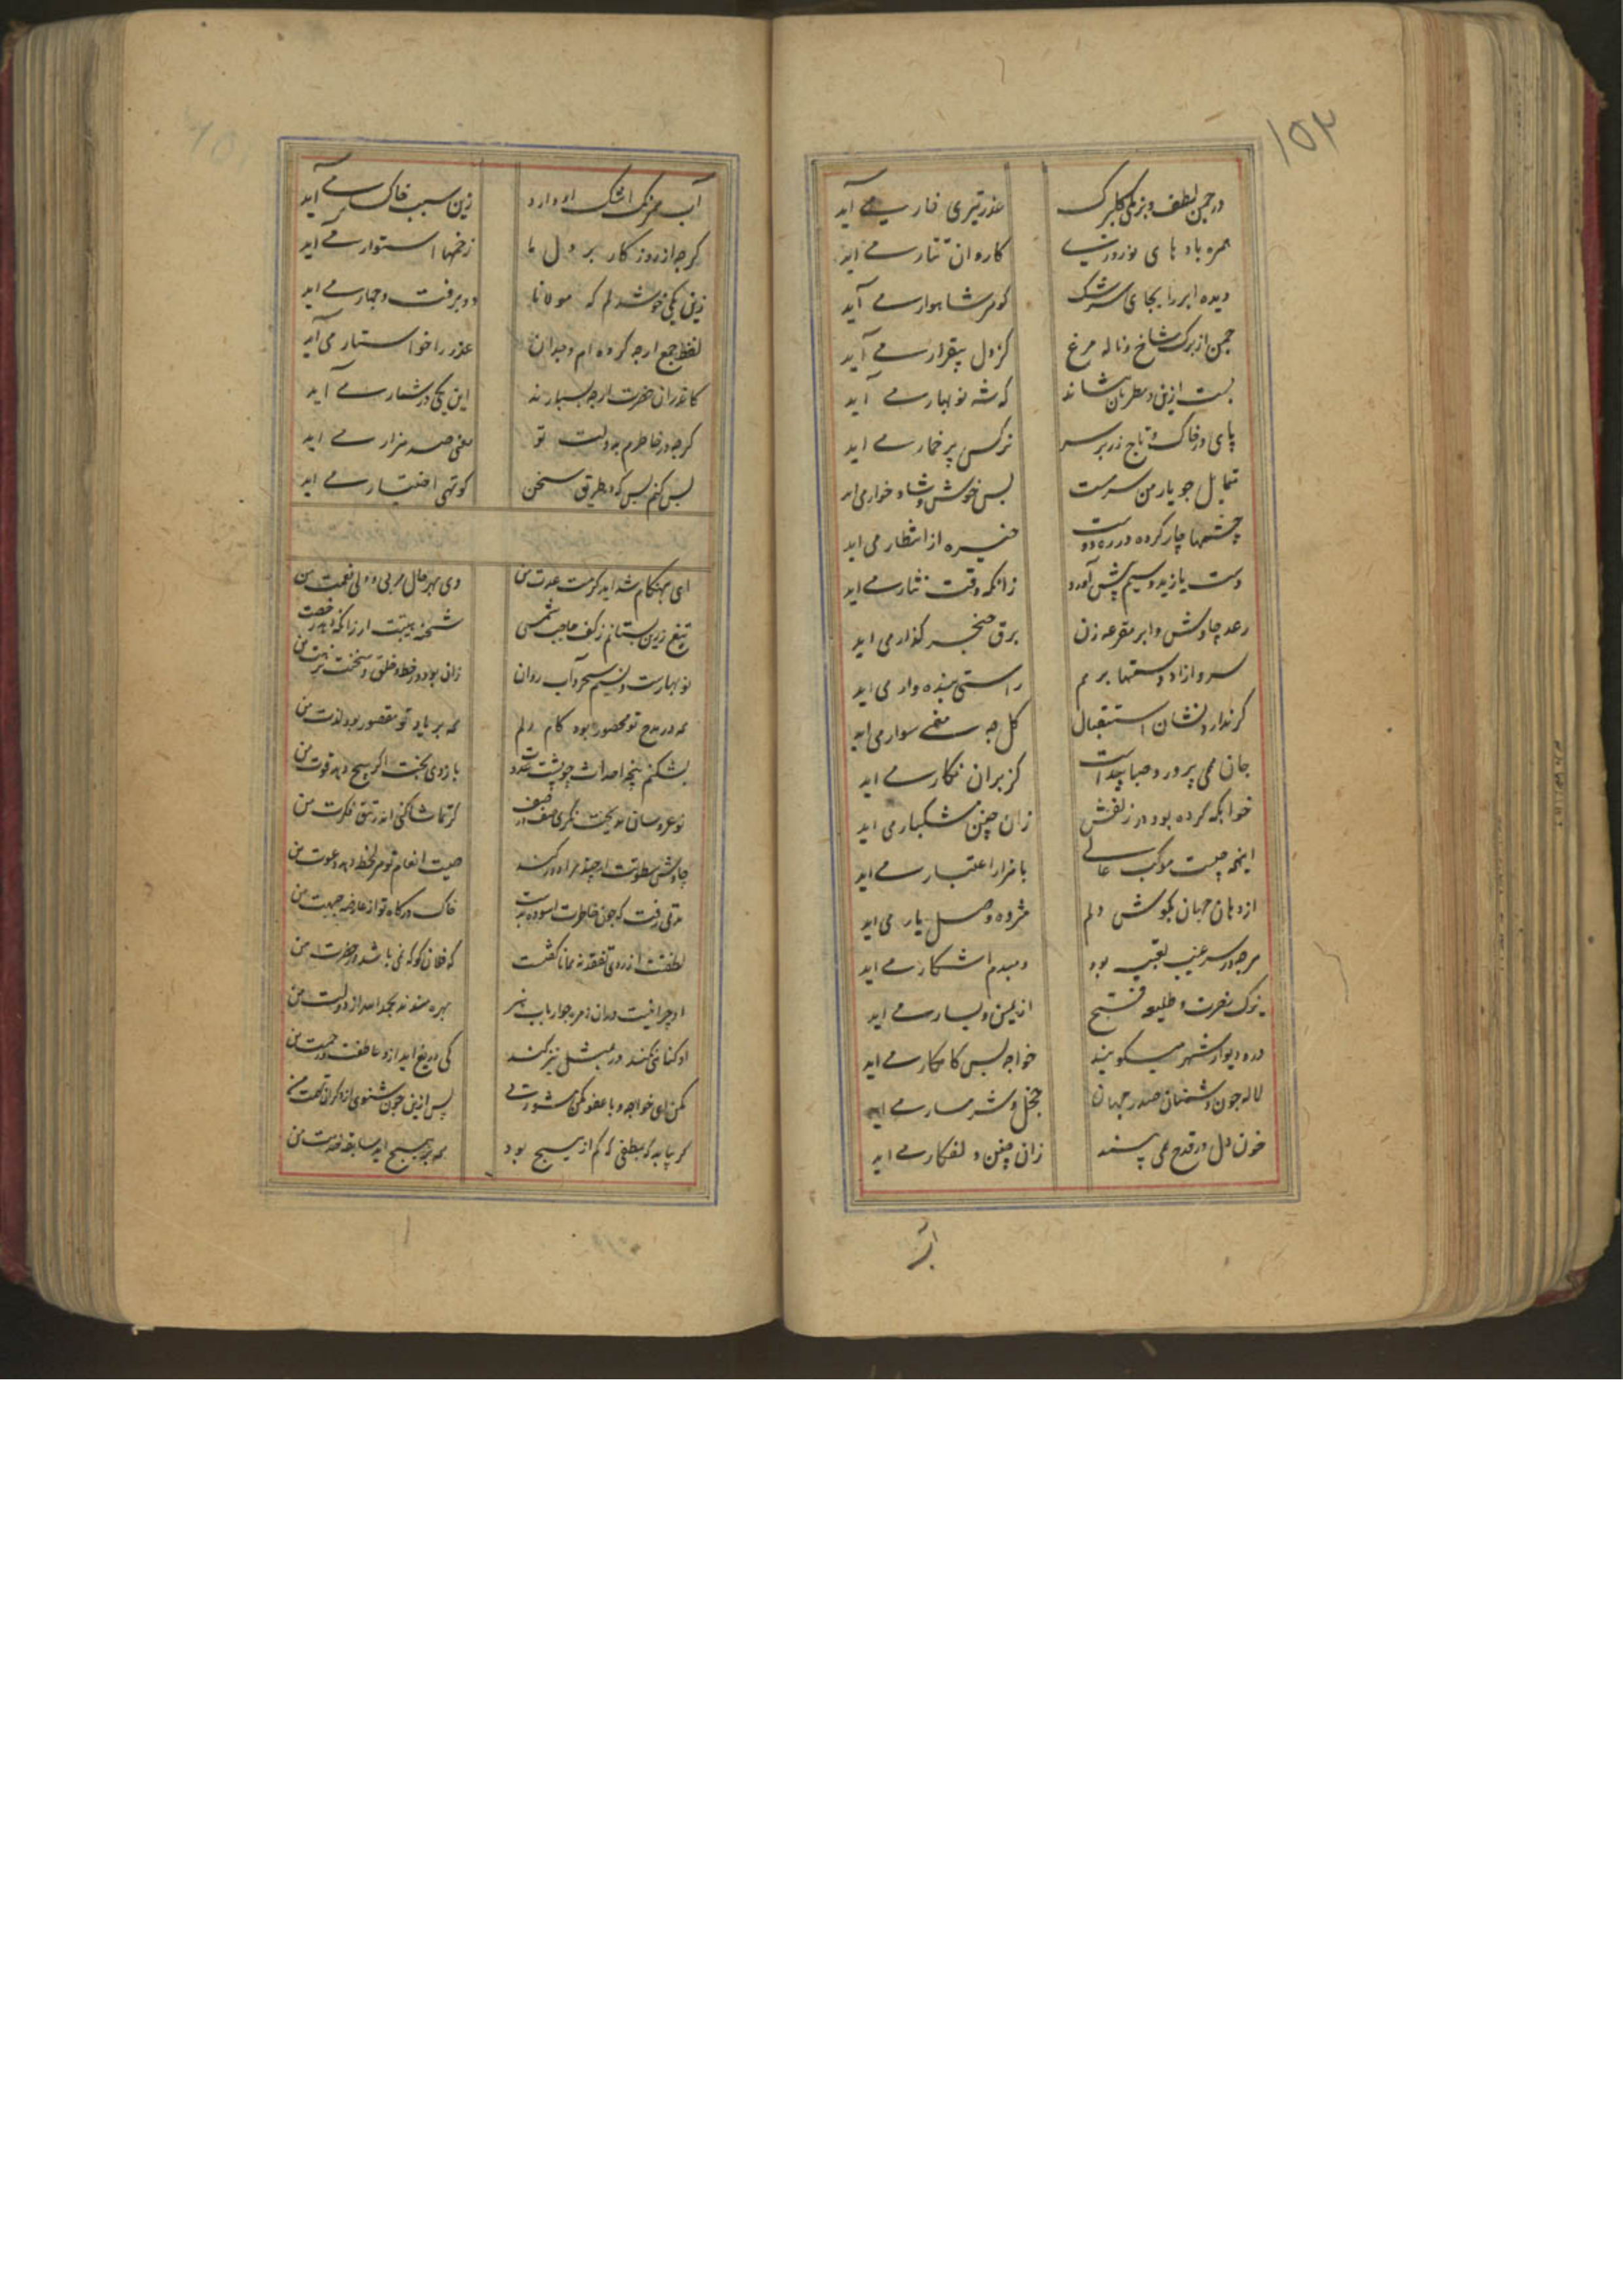 ۱۵۳
در چمن لطف و بزمگی گلبرگ عذر تیزی خار می آید
همره بادهای نوروزی کاروان تتار می آید
دیده ابر را بجای سرشک کوهر شاهوار می آید
چمن از برک شاخ و ناله مرغ کز دل بیقرار می آید
بست ازین و مطربان شاند که شه نوبهار می آید
پای در خاک و تاج زر بر سر نرکس پر خمار می آید
متمایل جو یار من سرمست بس خوش و شادخوار می اید
چشمها چار کرده در ره دوست خیره از انتظار می اید
دست یازید و سیم پیش آورد زانکه وقت نثار می اید
رعد چاوش و ابر مقرعه زن برق خنجر گذار می اید
سرو ازاد دستها بر هم راستی بنده وار می اید
کر ندارد نشان استقبال کل چه معنی سوار می اید
جان همی پرورد صبا پیداست کز بران نکار می اید
خوابکه کرده بود در زلفش زان چنین مشکبار می اید
اینهمه چیست موکب عالی با هزار اعتبار می اید
از دهان جهان بکوش دلم مژده وصل یار می اید
هرجه در سر غیب تعبیه بود دمبدم اشکار می اید
یزک نصرت و طلیعه فتح از یمین و یسار می اید
در و دیوار شهر میکویند خواجه بس کامکار می اید
لاله جون دشمنان صدر جهان خجل و شرمسار می اید
خون دل در قدح همی بیند زان چنین دلفکار می اید
آب
آب همرنک اشک او دارد زین سبب خاکسار می آید
کرجه از روزکار بر دل ما زخمها استوار می اید
زین یکی خوشدلم که مولانا دو برفت و چهار می اید
لفظ جمع ارچه کرده ام و بدان عذر را خواستار می آید
کاندران حضرت ارچه بسیارند این یکی در شمار می آید
کرجه در خاطرم بدولت تو معنی صد هزار می اید
بس کنم بس که در طریق سخن کوتهی اختیار می اید
ای بهنکام شداید کرمت عدت من وی بهر حال مربی و ولی نعمت من
تیغ زرین بستانم ز کف حاجب شمس شحنه هیبتت ار زانکه دهد رخصت من
نوبهارست و نسیم سحر و آب روان زان بود در خط و خلق و سخنت نزهت من
همه در مدح تو محصور بود کام دلم همه بر یاد تو مقصور بود لذت من
بشکنم پنجه احداث چو پشت عدوت بازوی بختت اکر هیچ دهد قوت من
نوعروسان کر تماشا کنی اندر تتق فکرت من
چاوش سطوتت ار چند مرا دور کند صیت انعام تو هر لحظه دهد دعوت من
مدتی رفت که جون خاطرت اسوده بدست خاک درکاه تو از عارضه جبهت من
لطفت از روی تفقد نه همانا کفت که فلان کو که نمی باشد در حضرت من
او چرا نیست دران زمره جو ارباب هنر بهره مندند بحمد الله از دولت من
او کناهی نکند ور بمثل نیز کند کی دریغ اید ازو عاطفت و رحمت من
مکن ای خواجه و با عفو بکن مشورتی پس ازین جون شنوی از دکران تهمت من
کم از هیچ بود همه بر هیچ اید سابقه خدمت من